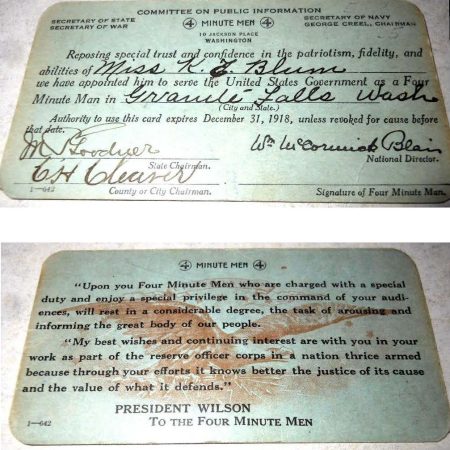 COMMITTEE ON PUBLIC INFORMATION
SECRETARY OF STATE
SECRETARY OF WAR
4 MINUTE MEN 4
10 JACKSON PLACE
WASHINGTON
SECRETARY OF NAVY
GEORGE CREEL, CHAIRMAN
Reposing special trust and confidence in the patriotism, fidelity, and
abilities of Miss K. L. Blum
we have appointed him to serve the United States Government as a Four
Minute Man in Granite Falls Wash
(City and State.)
Authority to use this card expires December 31, 1918, unless revoked for cause before
that date.
Goodner
State Chairman.
Wm McCormick Blair
National Director.
C H Cleaver
County or City Chairman.
Signature of Four Minute Man.
1—642
4 MINUTE MEN 4
"Upon you Four Minute Men who are charged with a special
duty and enjoy a special privilege in the command of your audi-
ences, will rest in a considerable degree, the task of arousing and
informing the great body of our people.
"My best wishes and continuing interest are with you in your
work as part of the reserve officer corps in a nation thrice armed
because through your efforts it knows better the justice of its cause
and the value of what it defends."
PRESIDENT WILSON
TO THE FOUR MINUTE MEN
1—642